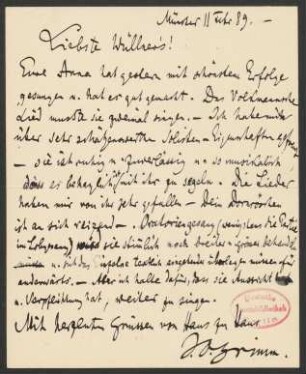 Münster 11 Febr 89. —
Liebste Wüllner's!
Eure Anna hat gestern mit schönstem Erfolge
gesungen u. hat es gut gemacht. Das Volkmann'sche
Lied musste sie zweimal singen. — Ich habe mich
über sehr schätzenswerthe Solisten-Eigenschaften
— sie ist ruhig u. zuverlässig u. so musikalisch,
dass es behaglich ist mit ihr zu segeln. Die Lieder
haben mir von ihr sehr gefallen — Dein Dornröschen
ist an sich reizend —. Oratoriengesang (wenigstens die Partie
im Lobgesang) sie stimmlich noch breiter
u.
anderwärts. — Aber ich halte dafür, dass sie Aussicht
u. Verpflichtung hat, weiter zu singen.
Mit herzlichen Grüssen von Haus zu Haus
J. O. Grimm.